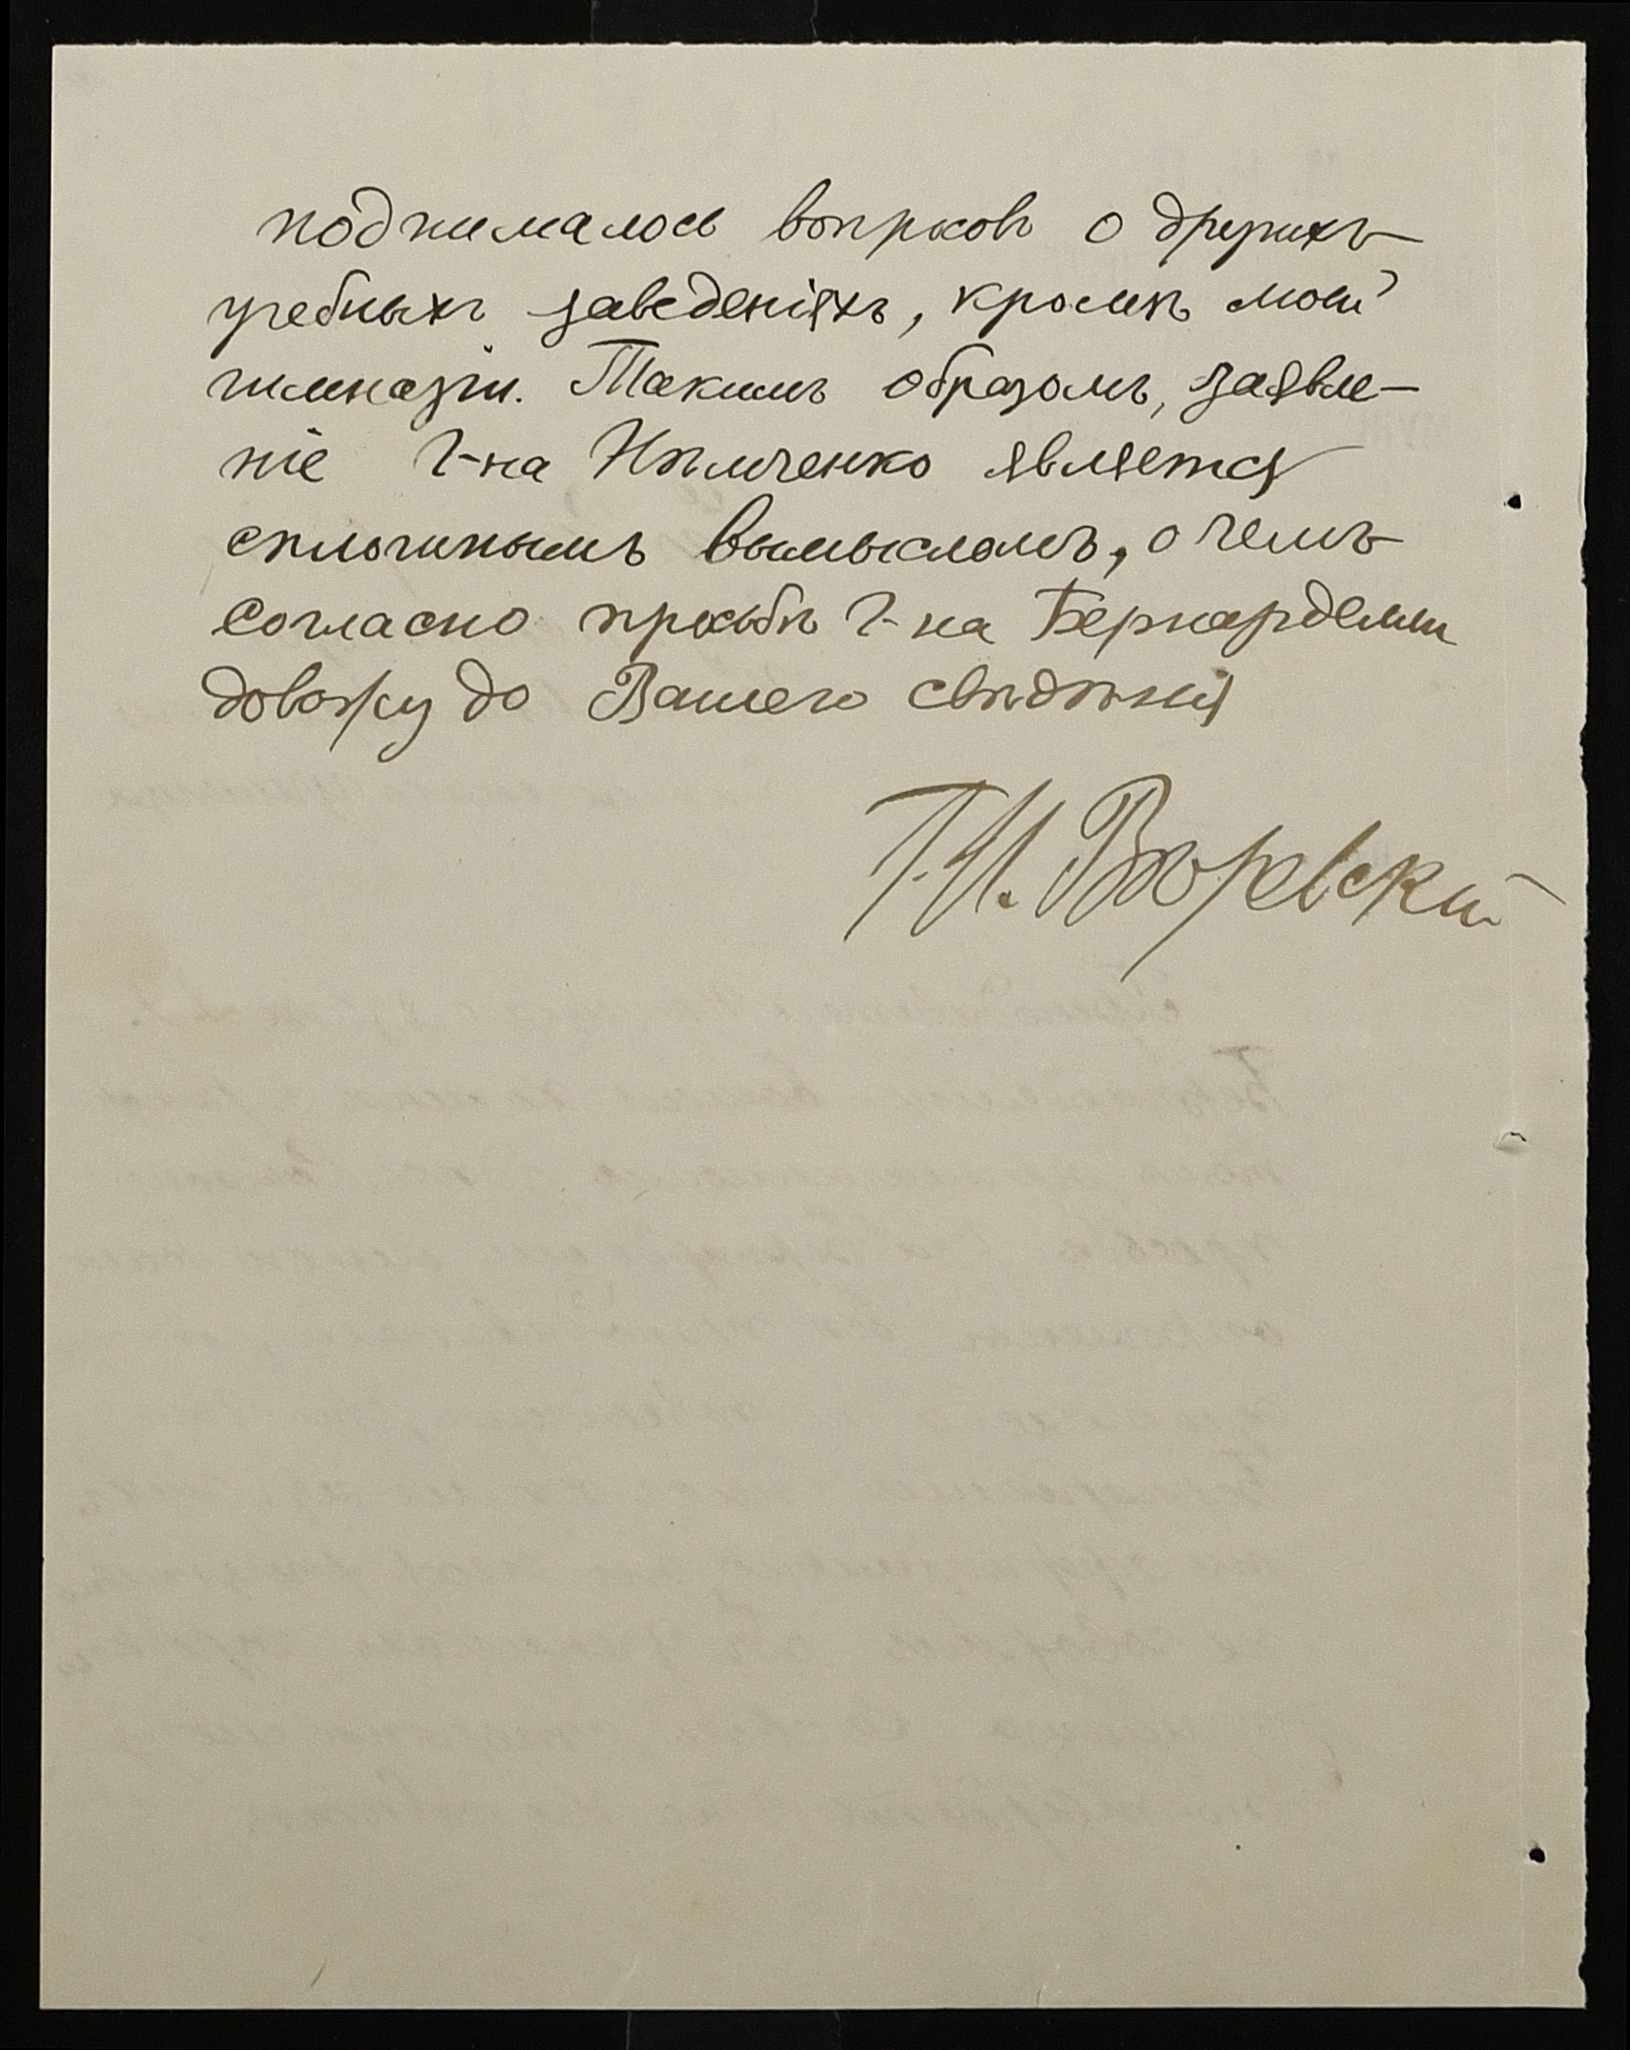 поднималось вопросовъ о другихъ
учебныхъ заведеніяхъ, кромѣ моей
гимназіи. Такимъ образомъ, заявле-
ніе г-на Нѣмченко является
сплошнымъ вымысломъ, о чемъ
согласно просьбѣ г-на Бернарделли
довожу до Вашего свѣдѣнія